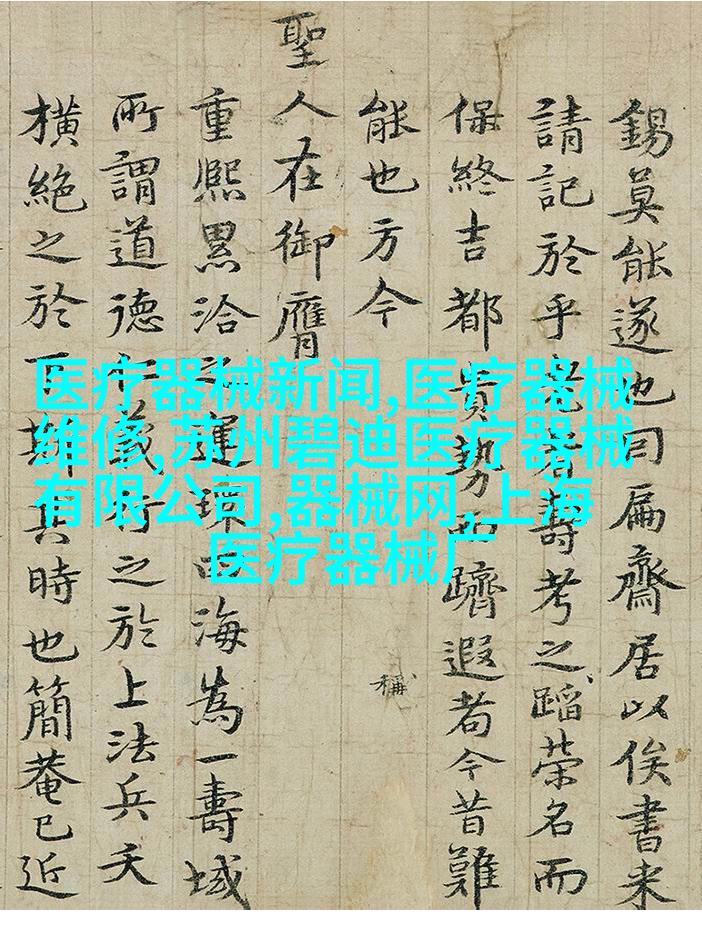 錫莫能遂也曰扁齋居以俟書来
請記於乎壽考之蹈榮名而
保終吉都貴勢而躋遐耇今昔難
能也方今
稱
聖
人在御膺
重熙累洽之運環四海為一壽域
所謂道德仁義行之於上法兵夭
橫絶之於下斯其時也簡菴已近
医疗器械新闻,医疗器械
维修,苏州碧迪医疗器械
有限公司,器械网,上海
医疗器械厂